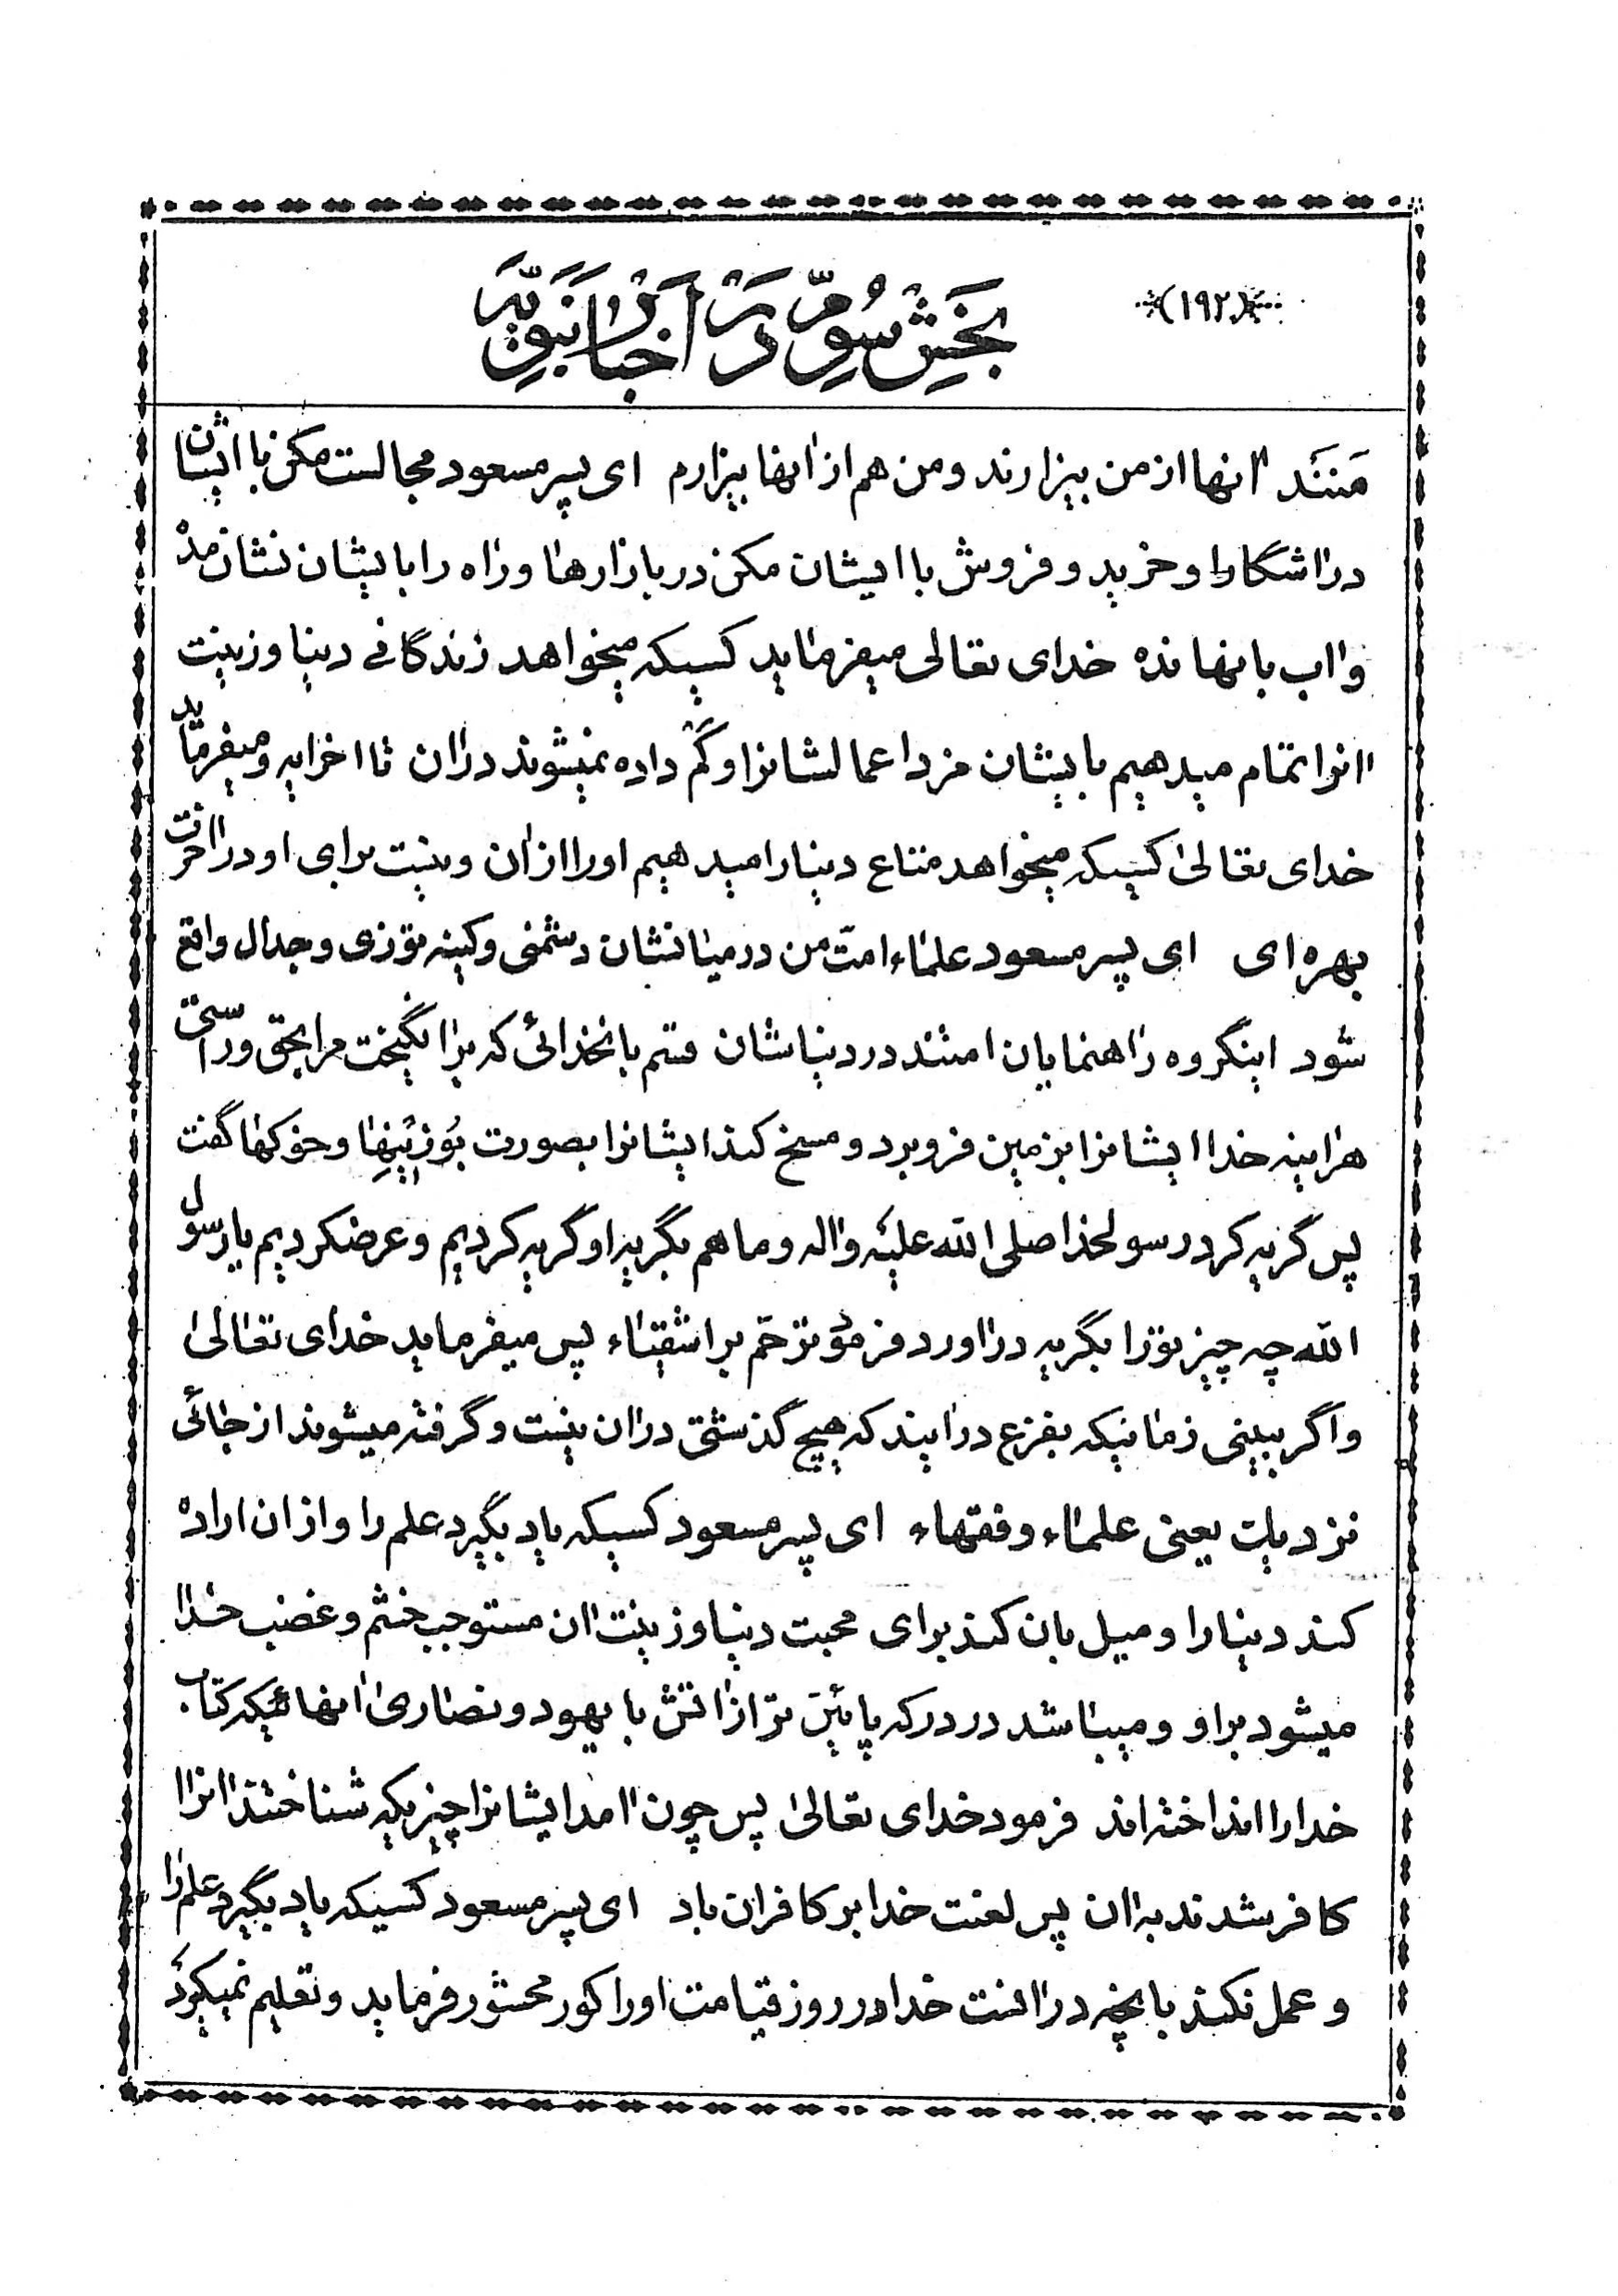 (۱۹۲)
بخش سوم در اخبار نبویه
منند انها از من بیزارند و من هم از انها بیزارم ای پسر مسعود مجالست مکن با ایشان
در اشکارا و خرید و فروش با ایشان مکن در بازارها و راه را بایشان نشان مده
و اب بانها نده خدای تعالی میفرماید کسیکه میخواهد زندگانی دنیا و زینت
انرا تمام میدهیم بایشان مزد اعمالشانرا و کم داده نمیشوند در ان تا اخر ایه و میفرماید
خدای تعالی کسیکه میخواهد متاع دنیا را میدهیم او را از ان و نیست برای او در اخرت
بهره ای ای پسر مسعود علماء امت من در میانشان دشمنی و کینه توزی و جدال واقع
شود اینگروه راهنمایان امتند در دنیاشان قسم بانخدائی که برانگیخت مرا بحق و راستی
هراینه خدا ایشانرا بزمین فرو برد و مسخ کند ایشانرا بصورت بوزینها و خوکها گفت
پس گریه کرد رسولخدا صلی الله علیه و اله و ما هم بگریه او گریه کردیم و عرضکردیم یا رسول
الله چه چیز تو را بگریه در اورد فرمود ترحم بر اشقیاء پس میفرماید خدای تعالی
و اگر ببینی زمانیکه بفزع در ایند که هیچ گذشتی در ان نیست و گرفته میشوند از جائی
نزدیک یعنی علماء و فقهاء ای پسر مسعود کسیکه یاد بگیرد علم را و از ان اراده
کند دنیا را و میل بان کند برای محبت دنیا و زینت ان مستوجب خشم و غضب خدا
میشود بر او و میباشد در درکه پائین تر از اتش با یهود و نصاری انهائیکه کتاب
خدا را انداخته اند فرمود خدای تعالی پس چون امد ایشانرا چیزیکه شناختند انرا
کافر شدند به ان پس لعنت خدا بر کافران باد ای پسر مسعود کسیکه یاد بگیرد علم را
و عمل نکند بانچه در انست خدا در روز قیامت او را کور محشور فرماید و تعلیم نمیگیرد